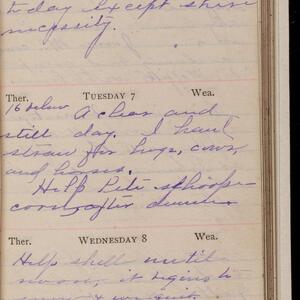 to day except shire
necessity.
Ther. TUESDAY 7 Wea.
16 below A clear and
still day. I haul
straw for hogs, cows,
and horses.
Help Pete schoop
corn after dinner
Ther. WEDNESDAY 8 Wea.
Help shell until
noon, it begins to